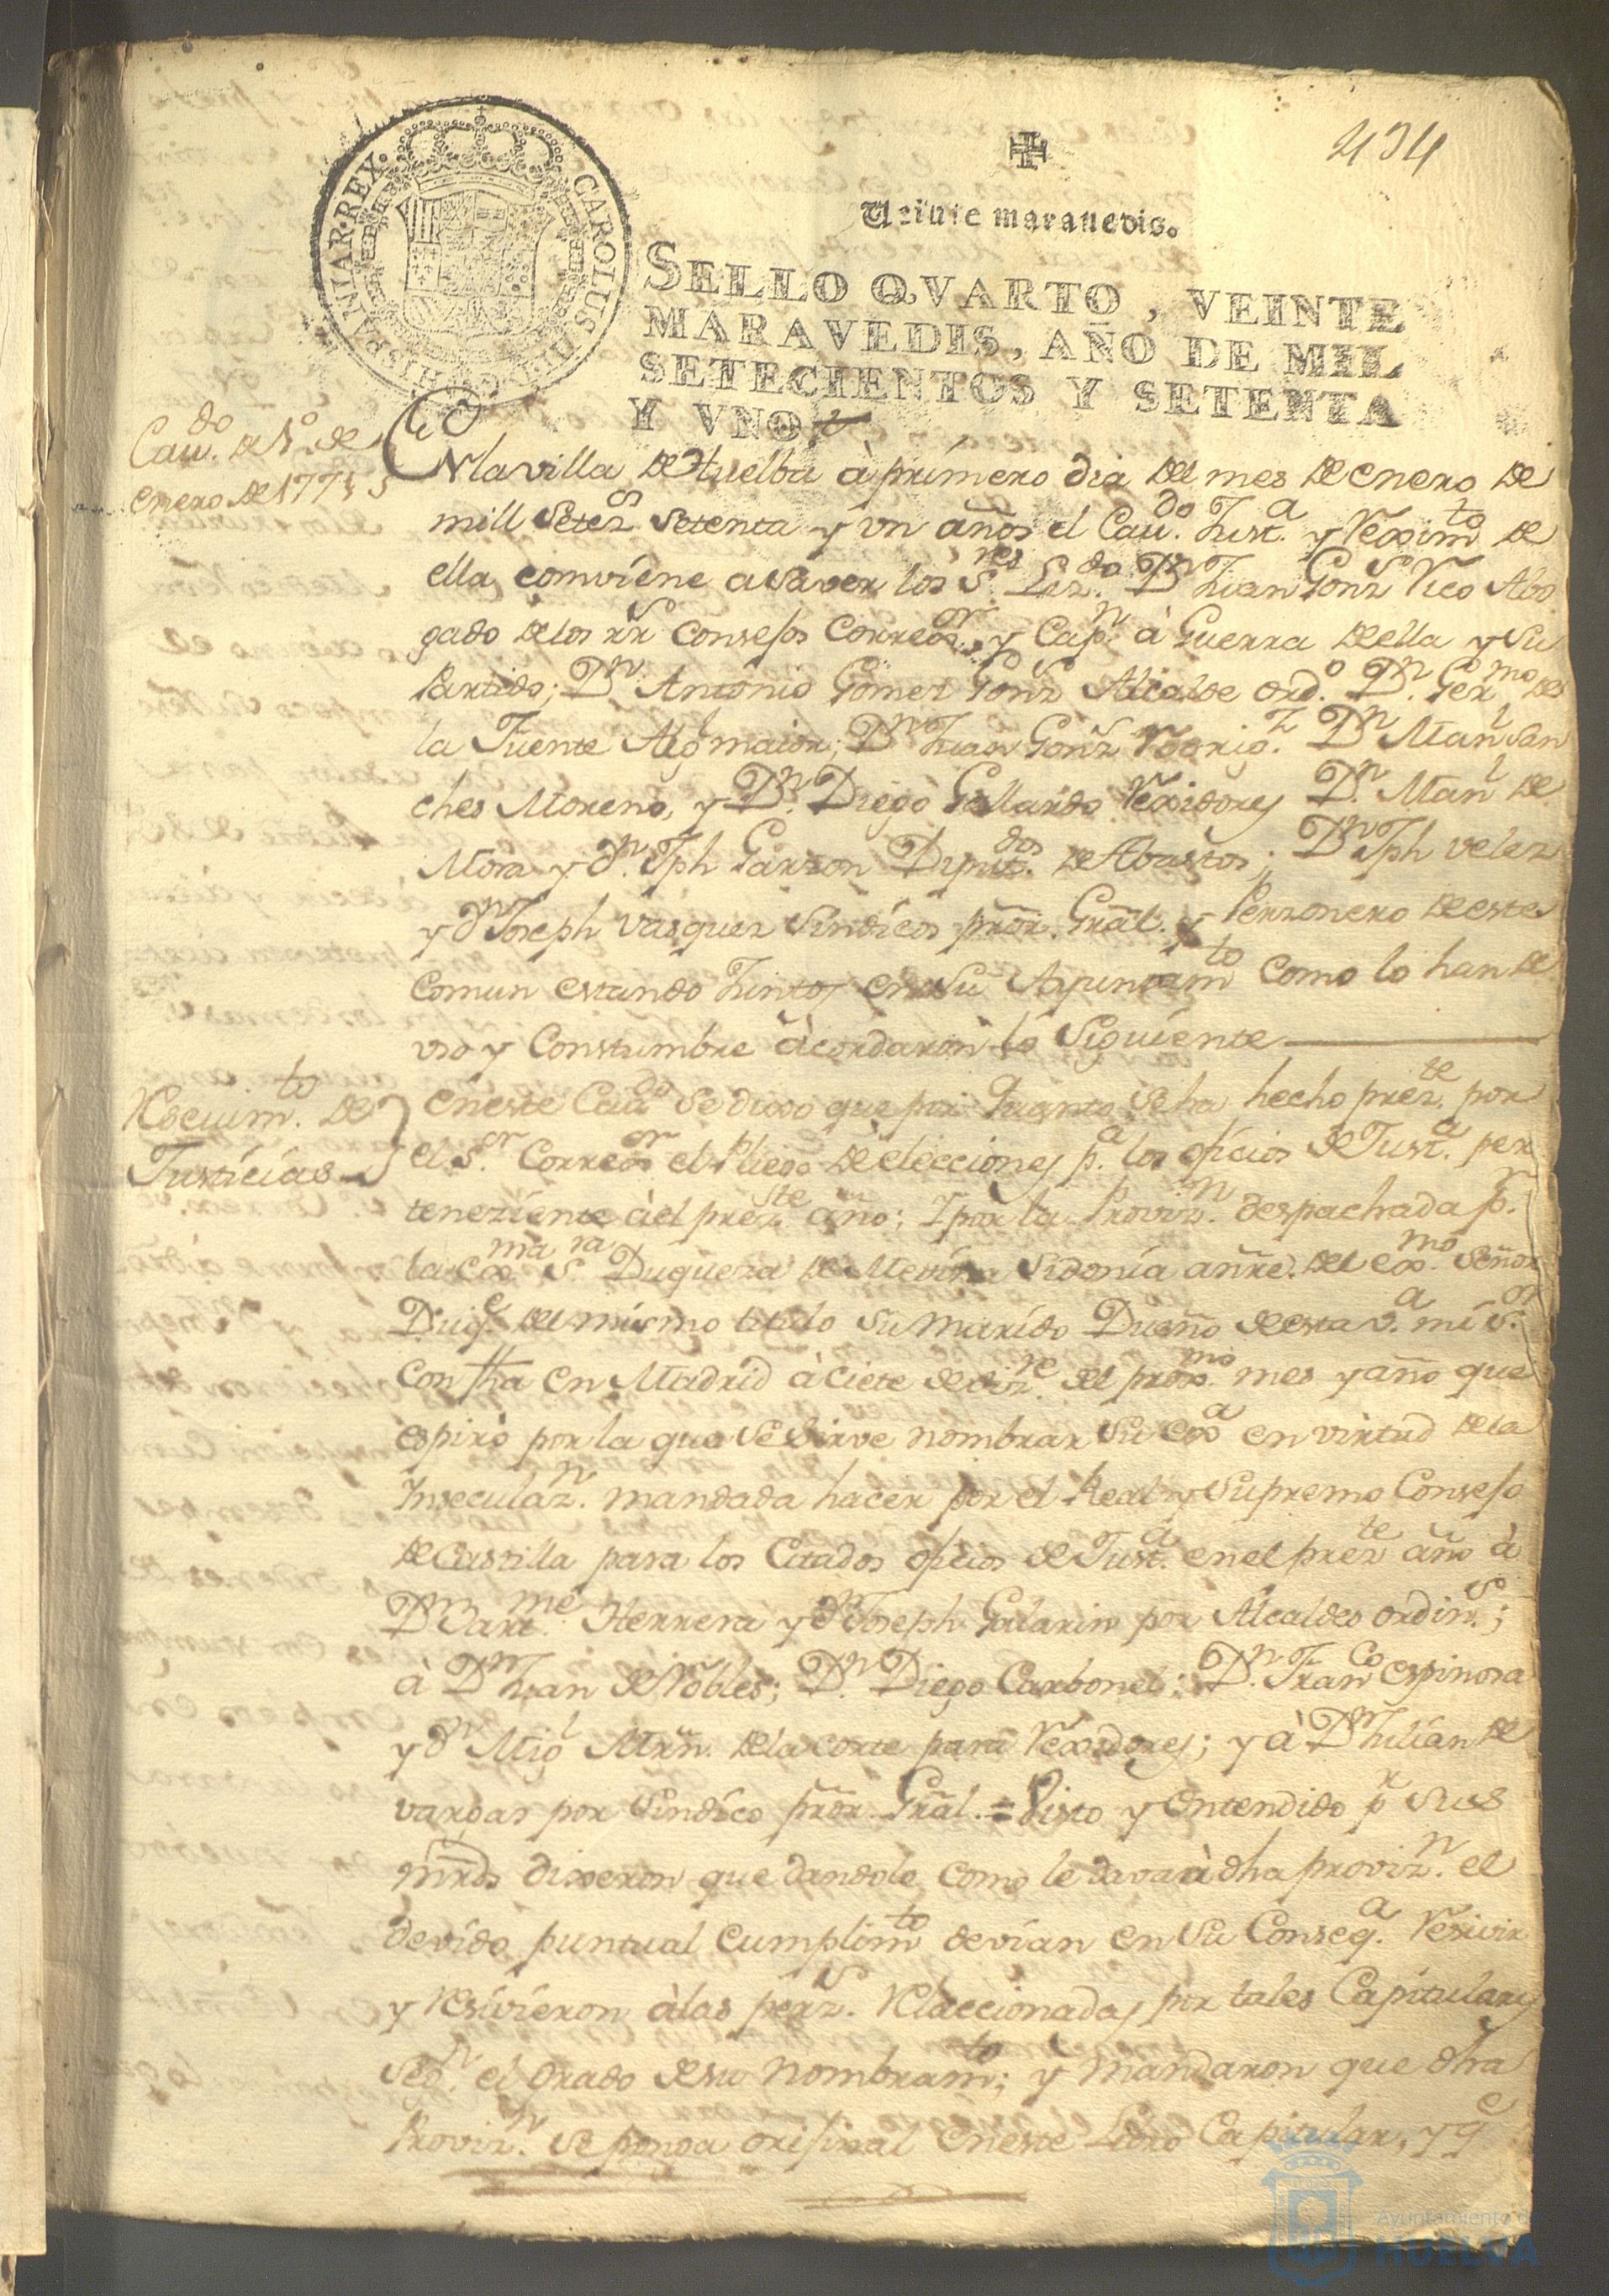 434
Veinte maravedis.
SELLO QVARTO, VEINTE
MARAVEDIS, AÑO DE MIL
SETECIENTOS Y SETENTA
Y VNO.
CAROLUS III D.G. HISPANIAR. REX.
Cavdo. de 1º de
enero de 1771
En la villa de Huelba à primero dia del mes de enero de
mill Setezs Setenta y un años el Cavdo. Justa. y Reximto de
ella, comviene a saver los Sres. Lizdo. Dn Juan Gonz Rico Abo
gado de los rrs Consejos Correor. y Capn. à Guerra de ella y su
Partido; Dn Antonio Gomez Gonz Alcalde ordo. Dn. Germo de
la Fuente Algl maior; Dn Juan Gonz Rodrigz. Dn Manl San
ches Moreno, y Dn. Diego Gallardo Rexidores Dn. Manl de
Mora y dn. Jph Garzon Diputdos. de Abastos; Dn Jph velez
y dn Joseph Vasquez Sindicos pror. Gral. y Perzonero de este
Comun estando Juntos en su Ayuntamto como lo han de
uso y Constumbre àcordaron lo Siguiente
Rescivimto. de
Justicias
en este Cavdo Se dixo que por quanto Se ha hecho prezte. por
el Sor. Correor el Pliego de elecciones pa. los oficios de Justa. per
teneziente àel prezte. año; I por la Provizn. despachada pr.
la Exma Sra. Duquesa de Medina Sidonia añre. del exmo. Señor
Duqe. del mismo titulo su marido Dueño de esta va. mi Sor.
con fha en Madrid à ciete de dizre. del proxmo. mes y año que
espiró por la que Se Sirve nombrar Su Exa en virtud de la
Inseculazn. mandada hacer por el Real y Supremo Consejo
de Castilla para los Citados oficios de Justa. en el prezte año à
Dn Bartme. Herrera y dn Joseph Galarin por Alcaldes ordins.;
à Dn Juan de Robles; Dn. Diego Carbonel; Dn. Franco espinosa
y dn Migl Mrñ. de la corte para Rexidores; y à Dn Julian de
vargas por Sindico pror. Gral. = Visto y entendido pr Sus
mrds dixeron que dandole, como le davan à dha provizn. el
devido puntual cumplimto devian en Su Conseqa. Resivir
y resivieron à las perzs. Relaccionadas por tales Capitulares
Segn. el grado de su nombramto; y mandaron que dha
Provizn. se ponga orijinal en este Libro Capitular, y qe
Ayuntamiento de
HUELVA